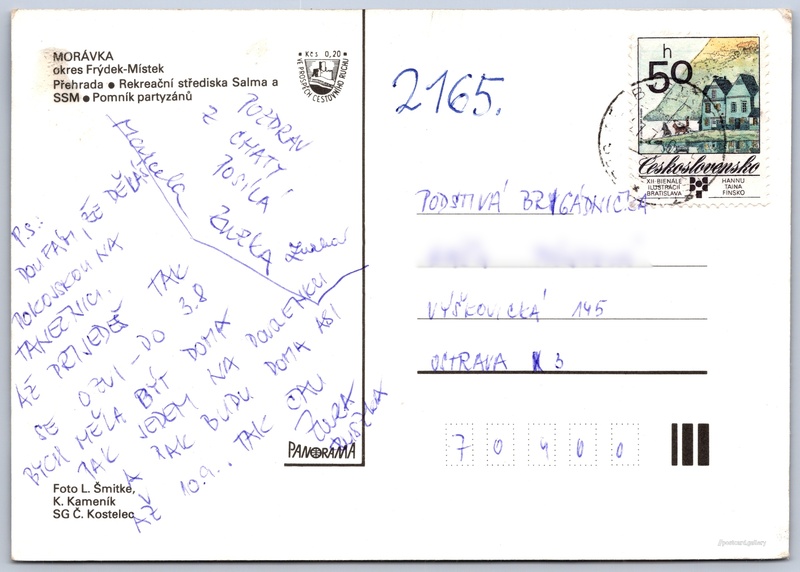 MORÁVKA
okres Frýdek-Místek
Přehrada ● Rekreační střediska Salma a
SSM ● Pomník partyzánů
• Kčs 0,20 •
VE PROSPĚCH CESTOVNÍHO RUCHU
2165.
h
50
Československo
XII·BIENÁLE
ILUSTRÁCIÍ
BRATISLAVA
HANNU
TAINA
FINSKO
POZDRAV
Z CHATY
POSÍLÁ
ZUZKA
Marcela
P.S.:
DOUFÁM, ŽE DĚLÁŠ
POKOJSKOU NA
TANEČNICI.
AŽ PŘIJEDEŠ TAK
SE OZVI - DO 3.8
BYCH MĚLA BÝT DOMA
PAK JEDEM NA DOVOLENKU
A PAK BUDU DOMA ASI
AŽ 10.9.. TAK ČAU
PODSTIVÁ BRIGÁDNIČKA
VÝŠKOVICKÁ 145
OSTRAVA 3
7 0 4 0 0
PANORAMA
Foto L. Šmitke,
K. Kameník
SG Č. Kostelec